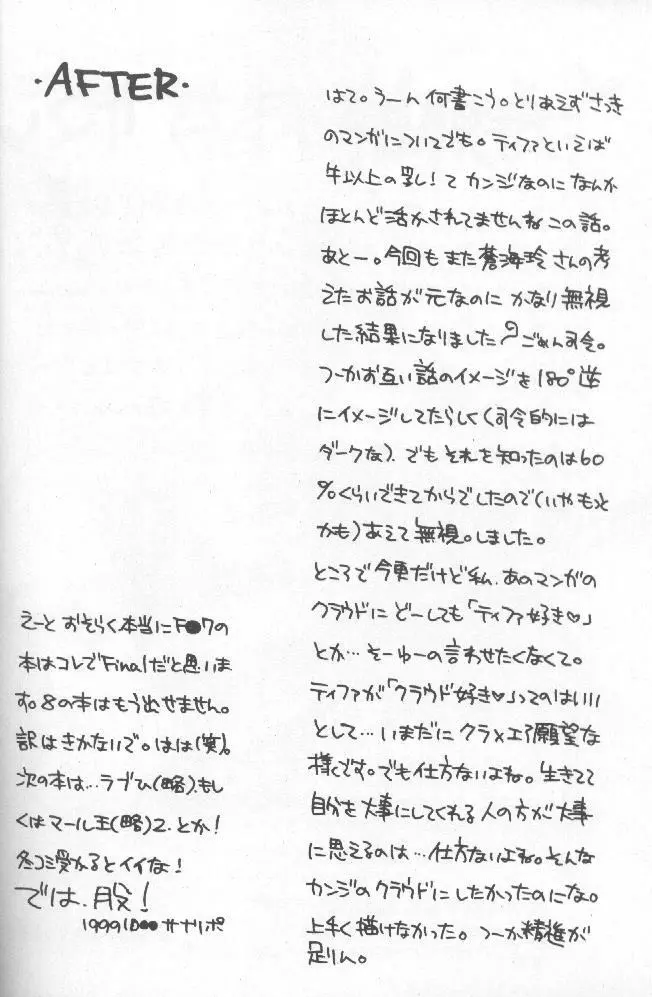 ・AFTER・
はて。うーん 何書こう。とりあえずさっき
のマンガについてでも。ティファといえば
牛以上の乳！て カンジなのに なんか
ほとんど活かされてませんね この話。
あとー。今回も また 蒼海玲 さんの考
えたお話が元なのに かなり無視
した結果になりました ごめん司令。
つーかお互い話のイメージを180°逆
にイメージしてたらしく（司令的には
ダークな）。でも それを知ったのは60
％くらいできてからでしたので（いやもっと
かも）あえて無視。しました。
ところで今更だけど私、あのマンガの
クラウドに どーしても「ティファ好き♡」
とか…そーゆーの言わせたくなくて。
ティファが「クラウド好き♡」ってのはいい
として…いまだに クラ×エア願望な
様です。でも仕方ないよね。生きてて
自分を大事にしてくれる人の方が大事
に思えるのは…仕方ないよね。そんな
カンジのクラウドに したかったのにな。
上手く描けなかった。つーか精進が
足りん。
えーと おそらく本当にF●7の
本はコレでFinalだと思いま
す。8の本はもう出せません。
訳はきかないで。はは（笑）。
次の本は…ラブひ（略）。もし
くはマール王（略）2. とか！
冬コミ受かるとイイな！
では、股！
1999.10●● サナリポ